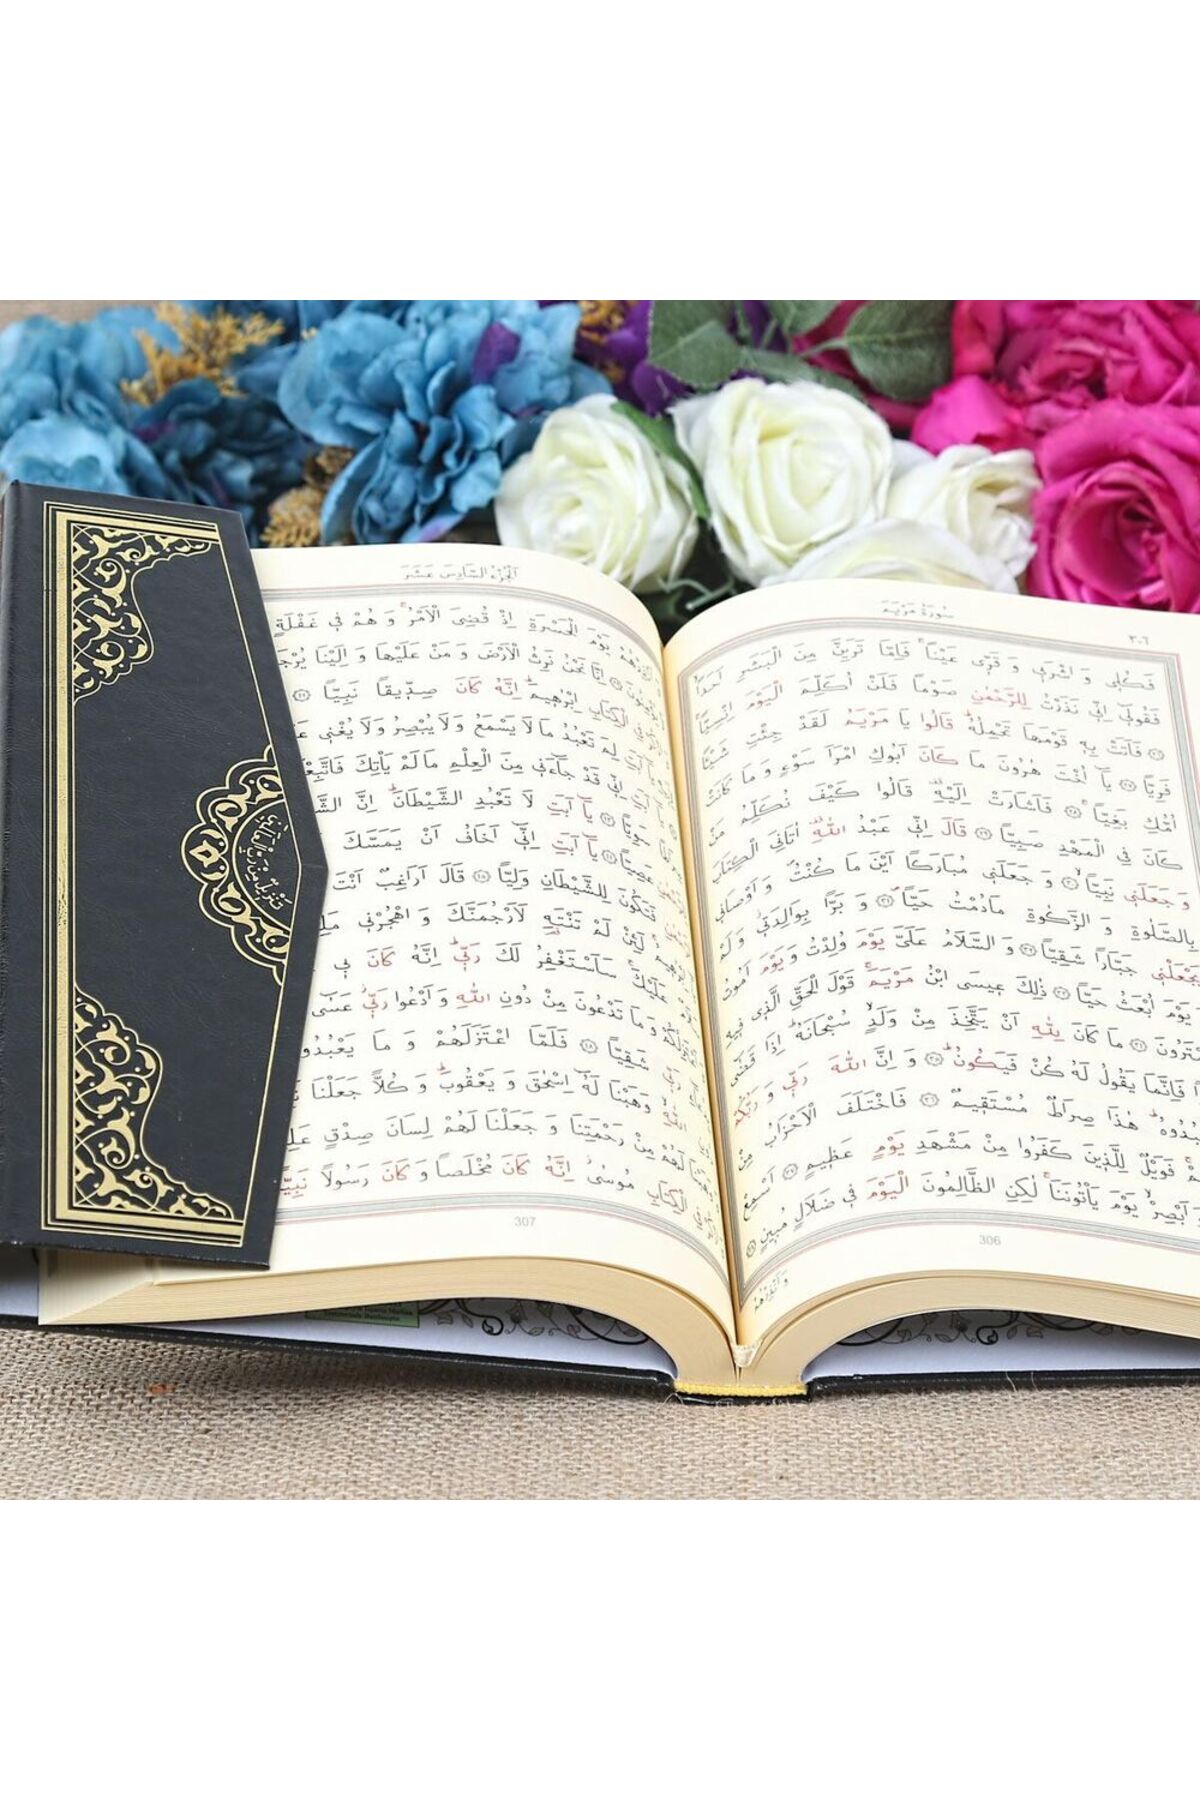 سُورَةُ مَرْيَمَ
٣٠٦
فَكُلِي وَاشْرَبِي وَقَرِّي عَيْنًاۚ فَاِمَّا تَرَيِنَّ مِنَ الْبَشَرِ اَحَدًا
فَقُولِٓي اِنِّي نَذَرْتُ لِلرَّحْمٰنِ صَوْمًا فَلَنْ اُكَلِّمَ الْيَوْمَ اِنْسِيًّا
﴿٢٦﴾ فَاَتَتْ بِهِ قَوْمَهَا تَحْمِلُهُۜ قَالُوا يَا مَرْيَمُ لَقَدْ جِئْتِ شَيْـًٔا
فَرِيًّا ﴿٢٧﴾ يَٓا اُخْتَ هٰرُونَ مَا كَانَ اَبُوكِ امْرَاَ سَوْءٍ وَمَا كَانَتْ
اُمُّكِ بَغِيًّاۚ ﴿٢٨﴾ فَاَشَارَتْ اِلَيْهِۜ قَالُوا كَيْفَ نُكَلِّمُ مَنْ
كَانَ فِي الْمَهْدِ صَبِيًّا ﴿٢٩﴾ قَالَ اِنِّي عَبْدُ اللّٰهِۜ اٰتَانِيَ الْكِتَابَ
وَجَعَلَنِي نَبِيًّاۙ ﴿٣٠﴾ وَجَعَلَنِي مُبَارَكًا اَيْنَ مَا كُنْتُۖ وَاَوْصَانِي
بِالصَّلٰوةِ وَالزَّكٰوةِ مَادُمْتُ حَيًّاۖ ﴿٣١﴾ وَبَرًّا بِوَالِدَتِيۘ وَلَمْ
يَجْعَلْنِي جَبَّارًا شَقِيًّا ﴿٣٢﴾ وَالسَّلَامُ عَلَيَّ يَوْمَ وُلِدْتُ وَيَوْمَ اَمُوتُ
يَوْمَ اُبْعَثُ حَيًّا ﴿٣٣﴾ ذٰلِكَ عِيسَى ابْنُ مَرْيَمَۚ قَوْلَ الْحَقِّ الَّذِي فِيهِ
مَا كَانَ لِلّٰهِ اَنْ يَتَّخِذَ مِنْ وَلَدٍۙ سُبْحَانَهُۜ اِذَا قَضٰٓى
فَاِنَّمَا يَقُولُ لَهُ كُنْ فَيَكُونُۜ ﴿٣٥﴾ وَاِنَّ اللّٰهَ رَبِّي وَرَبُّكُمْ
هٰذَا صِرَاطٌ مُسْتَقِيمٌ ﴿٣٦﴾ فَاخْتَلَفَ الْاَحْزَابُ مِنْ
فَوَيْلٌ لِلَّذِينَ كَفَرُوا مِنْ مَشْهَدِ يَوْمٍ عَظِيمٍ ﴿٣٧﴾ اَسْمِعْ
اَبْصِرْۙ يَوْمَ يَأْتُونَنَا لٰكِنِ الظَّالِمُونَ الْيَوْمَ فِي ضَلَالٍ مُبِينٍ ﴿٣٨﴾
306
وَاَنْذِرْهُمْ
اَلْجُزْءُ السَّادِسَ عَشَرَ
يَوْمَ الْحَسْرَةِ اِذْ قُضِيَ الْاَمْرُۢ وَهُمْ فِي غَفْلَةٍ
اِنَّا نَحْنُ نَرِثُ الْاَرْضَ وَمَنْ عَلَيْهَا وَاِلَيْنَا
الْكِتَابِ اِبْرٰهِيمَۜ اِنَّهُ كَانَ صِدِّيقًا نَبِيًّا ﴿٤١﴾
لِمَ تَعْبُدُ مَا لَا يَسْمَعُ وَلَا يُبْصِرُ وَلَا يُغْنِي
اِنِّي قَدْ جَٓاءَنِي مِنَ الْعِلْمِ مَا لَمْ يَأْتِكَ
سَوِيًّا ﴿٤٣﴾ يَٓا اَبَتِ لَا تَعْبُدِ الشَّيْطَانَۜ اِنَّ
عَصِيًّا ﴿٤٤﴾ يَٓا اَبَتِ اِنِّٓي اَخَافُ اَنْ يَمَسَّكَ
فَتَكُونَ لِلشَّيْطَانِ وَلِيًّا ﴿٤٥﴾ قَالَ اَرَاغِبٌ اَنْتَ
لَئِنْ لَمْ تَنْتَهِ لَاَرْجُمَنَّكَ وَاهْجُرْنِي
عَلَيْكَۚ سَاَسْتَغْفِرُ لَكَ رَبِّيۜ اِنَّهُ كَانَ بِي
وَمَا تَدْعُونَ مِنْ دُونِ اللّٰهِ وَاَدْعُوا رَبِّيۘ عَسٰٓى
شَقِيًّا ﴿٤٨﴾ فَلَمَّا اعْتَزَلَهُمْ وَمَا يَعْبُدُونَ
وَهَبْنَا لَهُٓ اِسْحٰقَ وَيَعْقُوبَۜ وَكُلًّا جَعَلْنَا
لَهُمْ مِنْ رَحْمَتِنَا وَجَعَلْنَا لَهُمْ لِسَانَ صِدْقٍ
الْكِتَابِ مُوسٰٓىۘ اِنَّهُ كَانَ مُخْلَصًا وَكَانَ رَسُولًا نَبِيًّا
307
تَنْزِيلٌ مِنْ رَبِّ الْعَالَمِينَ